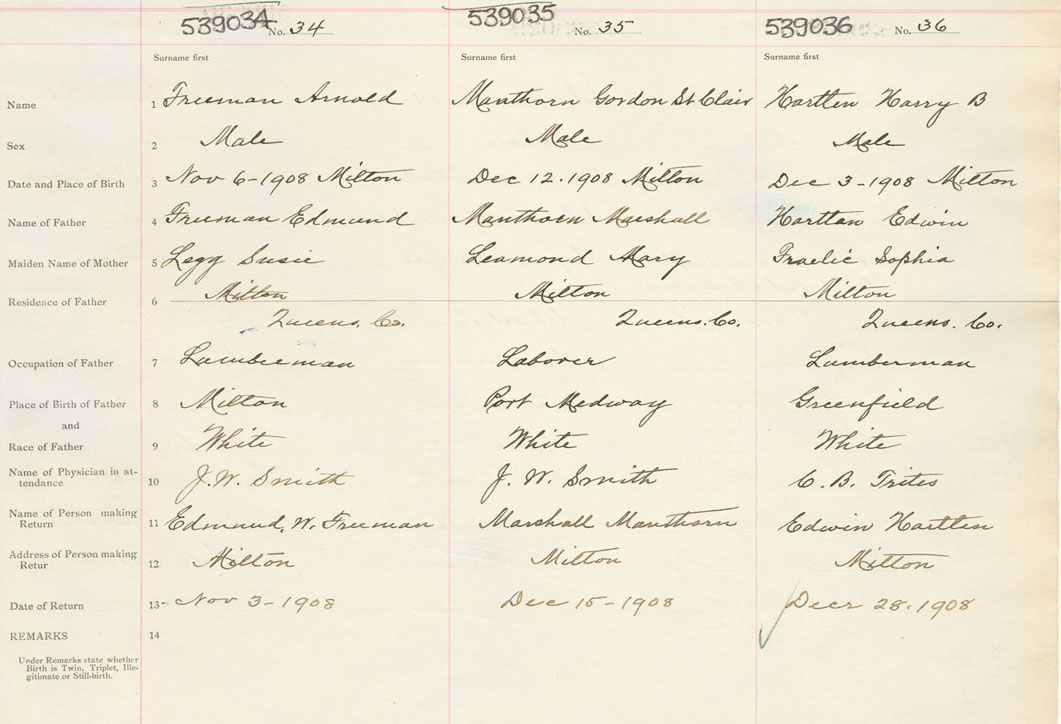 539034 No. 34 539035 No. 35 539036 No. 36
Surname first Surname first Surname first
Name 1 Freeman Arnold Manthorn Gordon St Clair Hartlen Harry B
Sex 2 Male Male Male
Date and Place of Birth 3 Nov 6-1908 Milton Dec 12.1908 Milton Dec 3-1908 Milton
Name of Father 4 Freeman Edmund Manthorn Marshall Hartlan Edwin
Maiden Name of Mother 5 Legg Susie Leamond Mary Fraelic Sophia
Residence of Father 6 Milton Milton Milton
Queens. Co. Queens. Co. Queens. Co.
Occupation of Father 7 Lumberman Laborer Lumberman
Place of Birth of Father 8 Milton Port Medway Greenfield
and
Race of Father 9 White White White
Name of Physician in at-
tendance 10 J. W. Smith J. W. Smith C. B. Trites
Name of Person making
Return 11 Edmund. W. Freeman Marshall Manthorn Edwin Hartlen
Address of Person making
Retur 12 Milton Milton Milton
Date of Return 13 Nov 3-1908 Dec 15-1908 Decr 28.1908
REMARKS 14
Under Remarks state whether
Birth is Twin, Triplet, Ille-
gitimate or Still-birth.